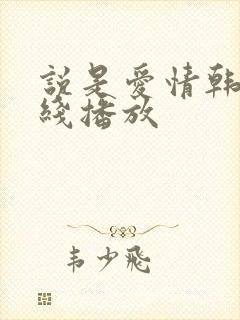 説是愛情韩
綫播放
韦少飛